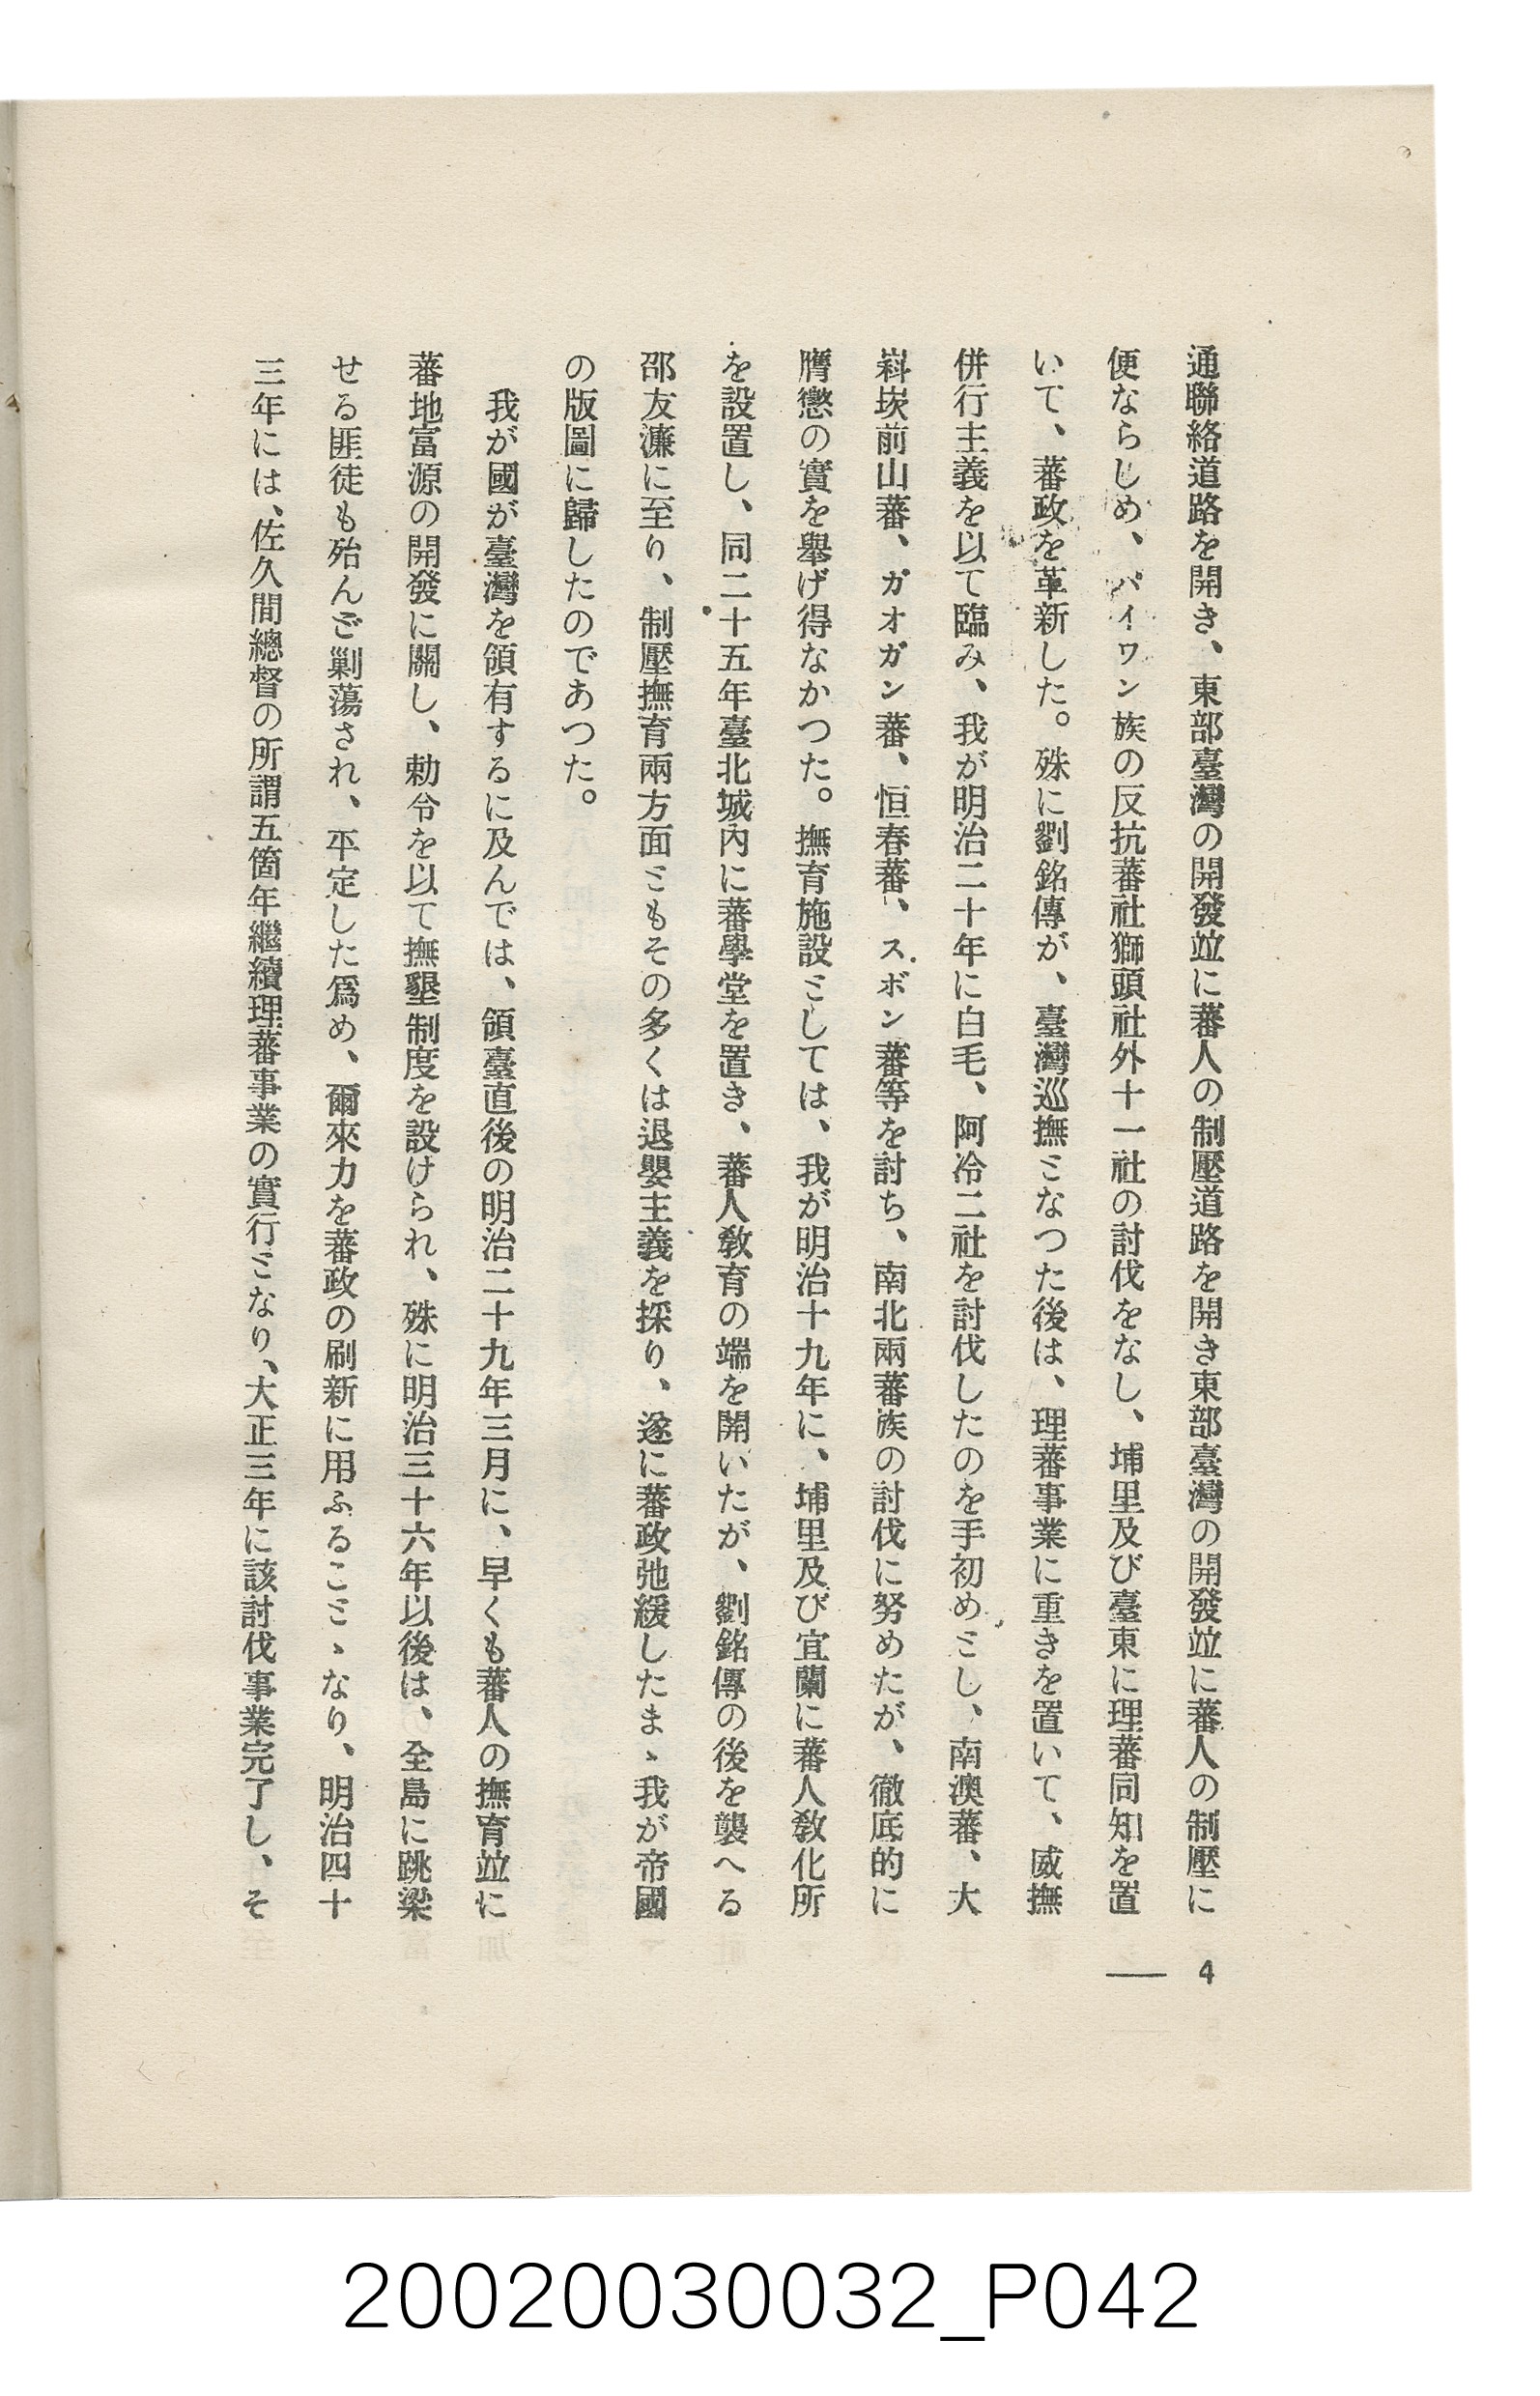 通聯絡道路を開き、東部臺灣の開發竝に蕃人の制壓道路を開き東部臺灣の開發竝に蕃人の制壓に
便ならしめ、パイワン族の反抗蕃社獅頭社外十一社の討伐をなし、埔里及び臺東に理蕃同知を置
いて、蕃政を革新した。殊に劉銘傳が、臺灣巡撫となつた後は、理蕃事業に重きを置いて、威撫
併行主義を以て臨み、我が明治二十年に白毛、阿冷二社を討伐したのを手初めとし、南澳蕃、大
嵙崁前山蕃、ガオガン蕃、恒春蕃、スボン蕃等を討ち、南北兩蕃族の討伐に努めたが、徹底的に
膺懲の實を舉げ得なかつた。撫育施設としては、我が明治十九年に、埔里及び宜蘭に蕃人教化所
を設置し、同二十五年臺北城內に蕃學堂を置き、蕃人教育の端を開いたが、劉銘傳の後を襲へる
邵友濂に至り、制壓撫育兩方面ともその多くは退嬰主義を採り、遂に蕃政弛緩したまゝ我が帝國
の版圖に歸したのであつた。
我が國が臺灣を領有するに及んでは、領臺直後の明治二十九年三月に、早くも蕃人の撫育竝に
蕃地富源の開發に關し、勅令を以て撫墾制度を設けられ、殊に明治三十六年以後は、全島に跳梁
せる匪徒も殆んど剿蕩され、平定した爲め、爾來力を蕃政の刷新に用ふることゝなり、明治四十
三年には、佐久間總督の所謂五箇年繼續理蕃事業の實行となり、大正三年に該討伐事業完了し、そ
4
20020030032_P042